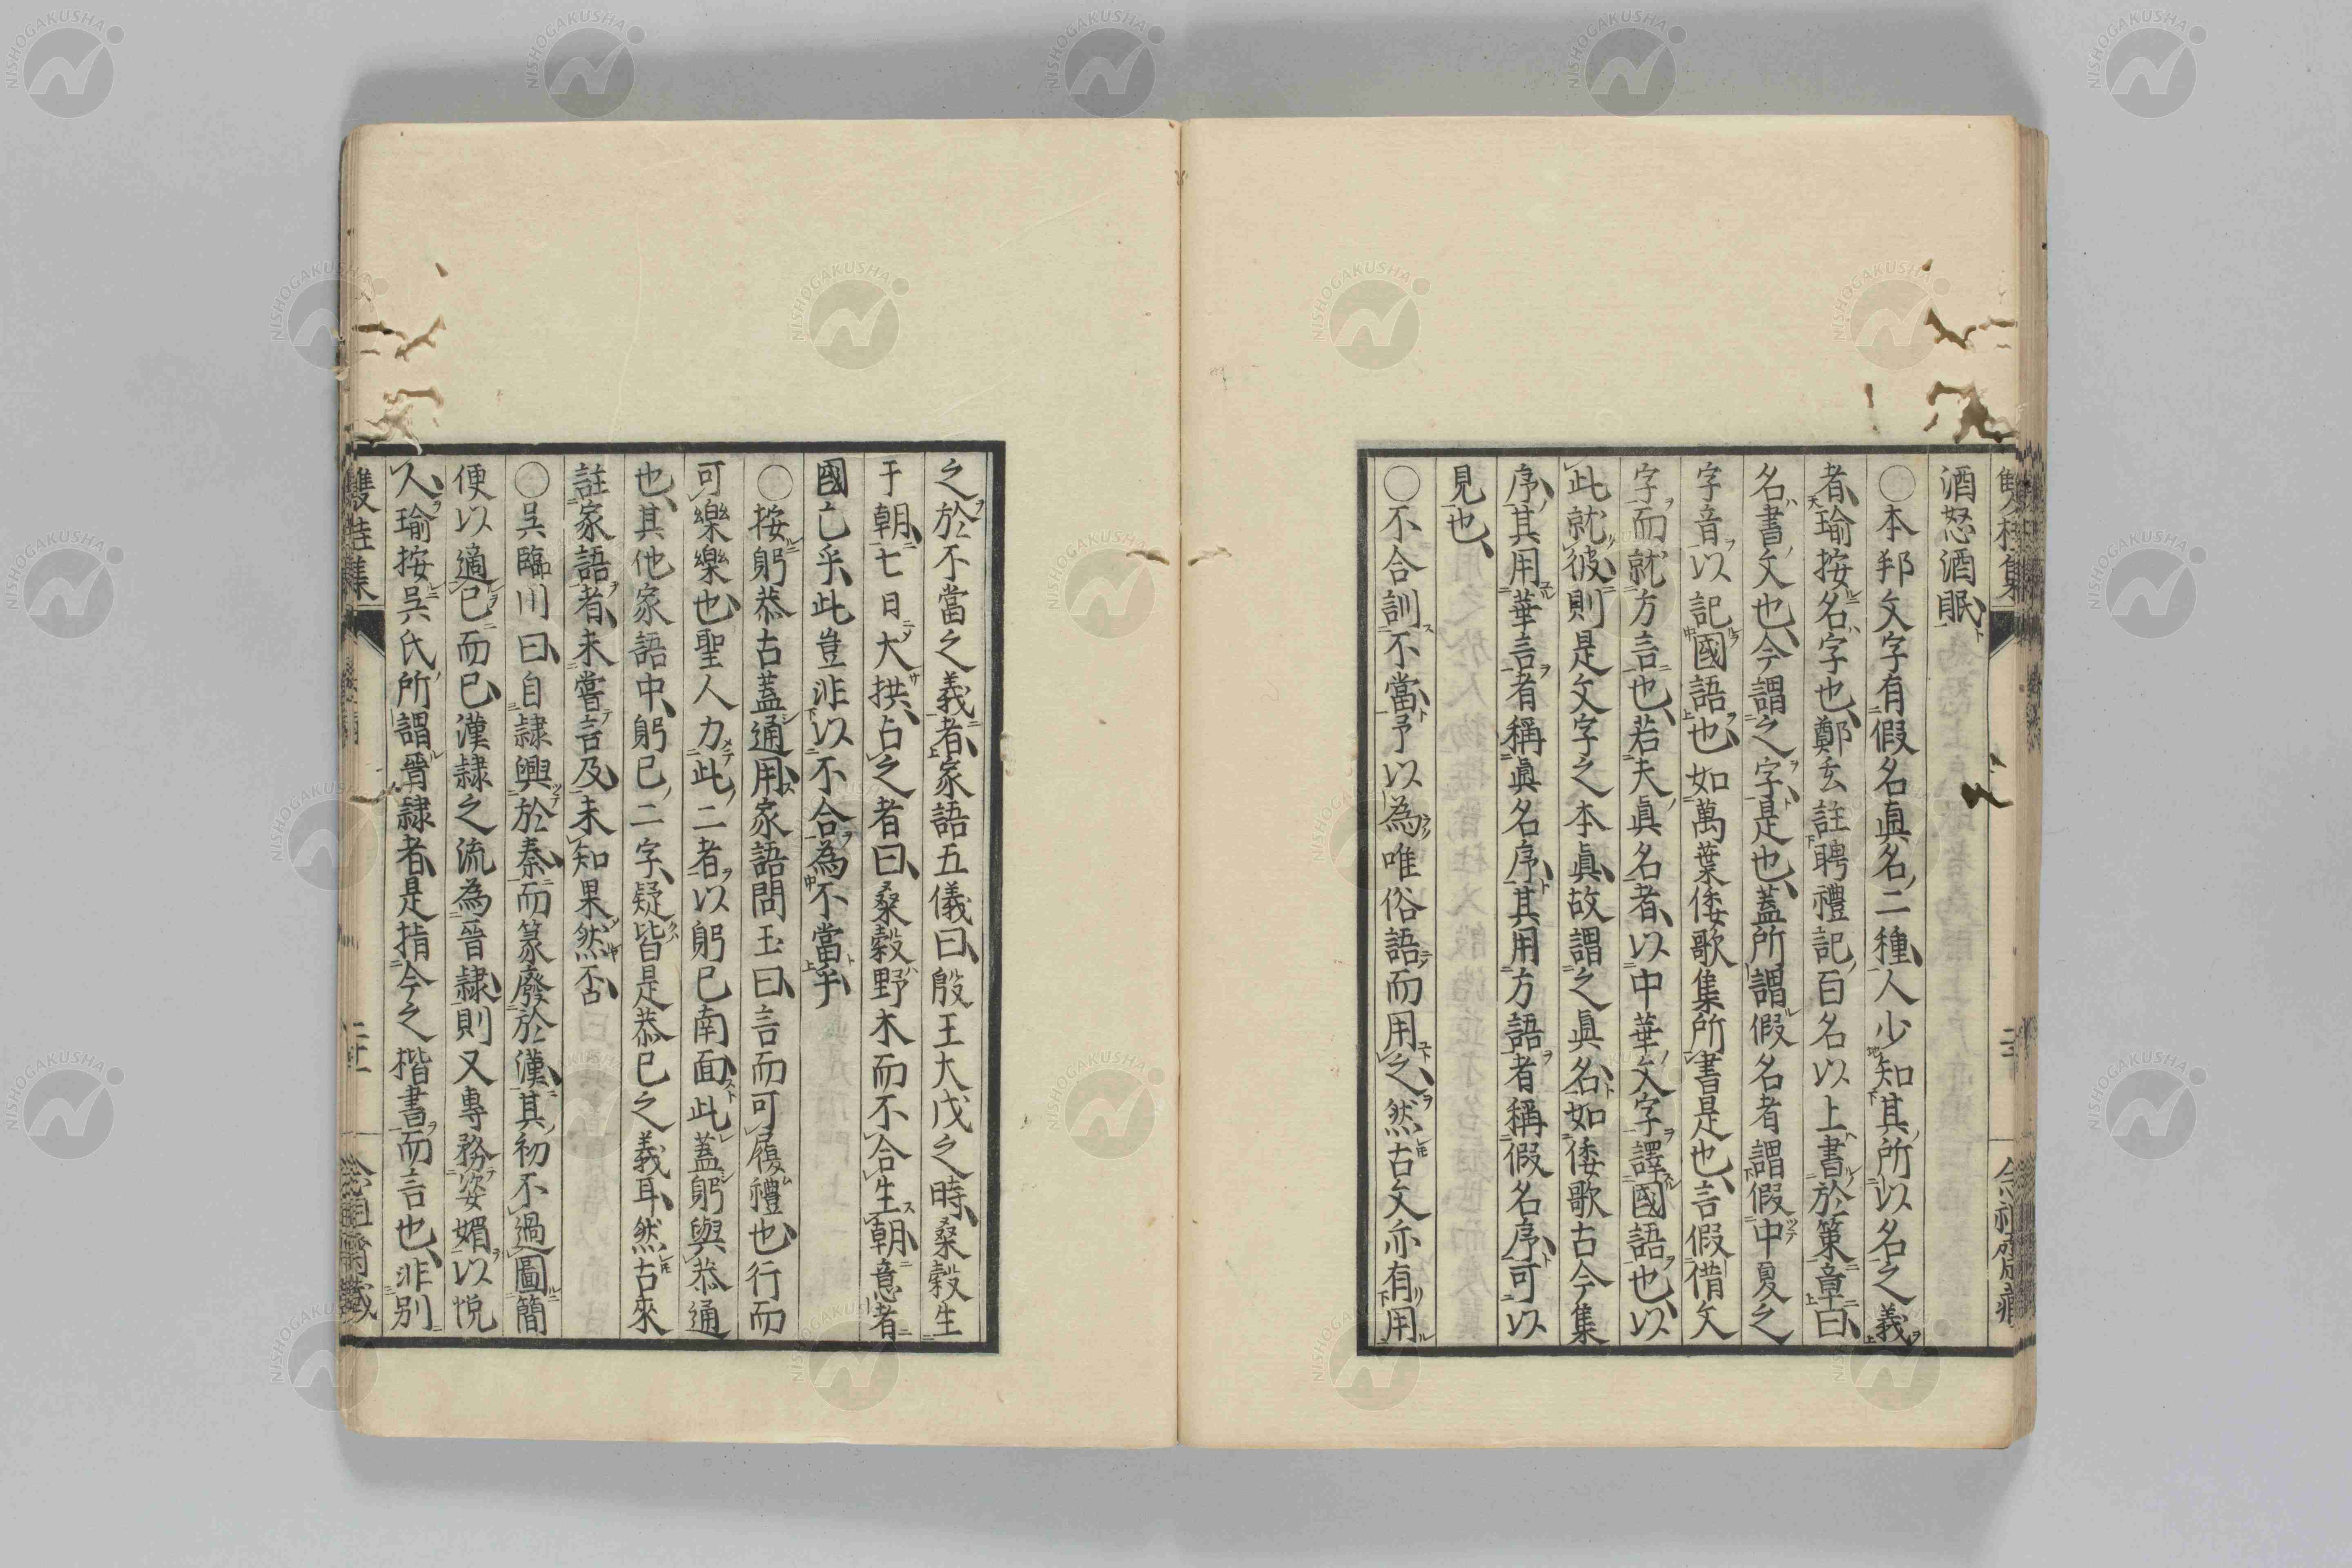 酒怒酒眠
〇本邦文字有假名眞名二種人少知其所以名之義
者瑜按名字也鄭玄註聘禮記百名以上書於策章曰
名書文也今謂之字是也蓋所謂假名者謂假中夏之
字音以記國語也如萬葉倭歌集所書是也言假借文
字而就方言也若夫眞名者以中華文字譯國語也以
此就彼則是文字之本眞故謂之眞名如倭歌古今集
序其用華言者稱眞名序其用方語者稱假名序可以
見也
〇不合訓不當予以為唯俗語而用之然古文亦有用
之於不當之義者家語五儀曰殷王大戊之時桑穀生
于朝七日大拱占之者曰桑穀野木而不合生朝意者
國亡乎此豈非以不合為不當乎
〇按躬恭古蓋通用家語問玉曰言而可履禮也行而
可樂樂也聖人力此二者以躬已南面此蓋躬與恭通
也其他家語中躬已二字疑皆是恭已之義耳然古來
註家語者未嘗言及未知果然否
〇吳臨川曰自隷興於秦而篆廢於漢其初不過圖簡
便以適已而已漢隷之流為晉隷則又專務姿媚以悅
人瑜按吳氏所謂晉隷者是指今之楷書而言也非別
雙桂集
NISHOGAKUSHA